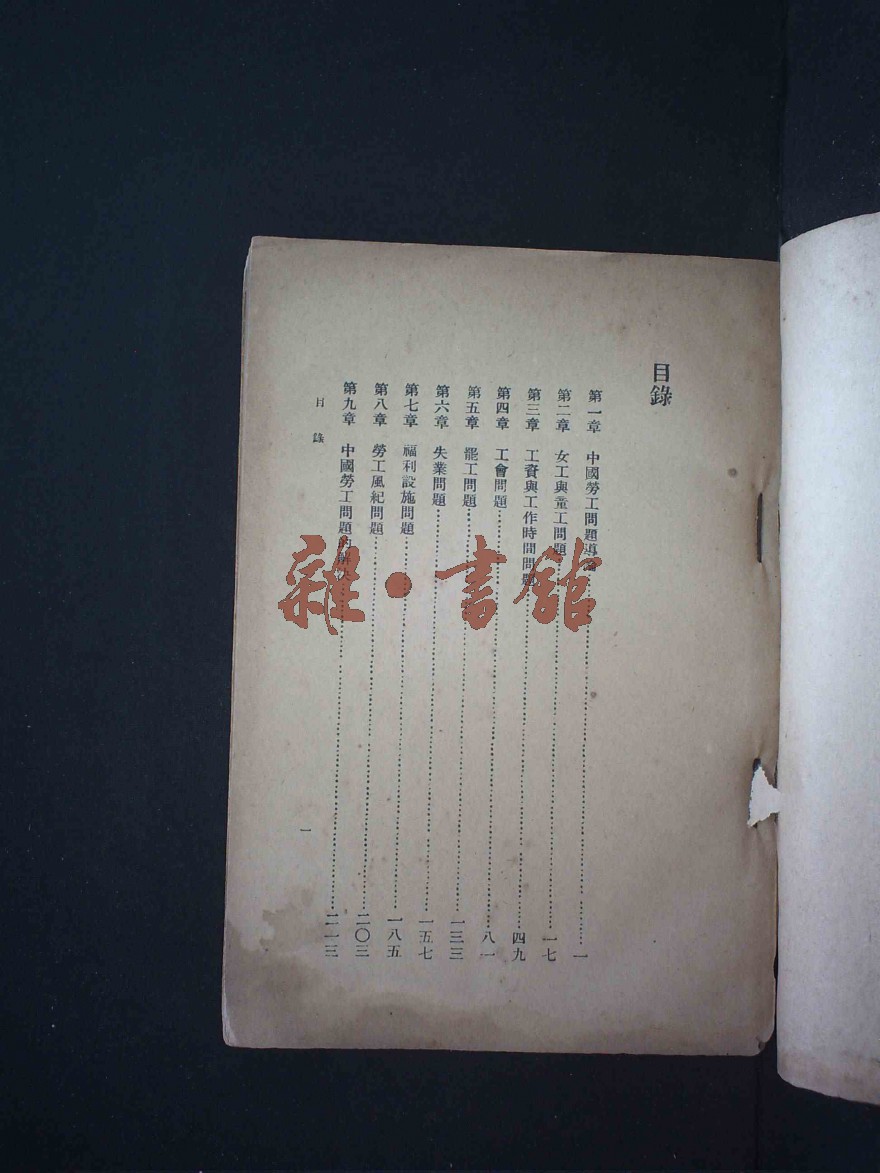 目錄
第一章 中國勞工問題導論……一
第二章 女工與童工問題……一七
第三章 工資與工作時間問題……四九
第四章 工會問題……八一
第五章 罷工問題……一三三
第六章 失業問題……一五七
第七章 福利設施問題……一八五
第八章 勞工風紀問題……二〇三
第九章 中國勞工問題的解決……二一三
目錄
一
雜·書館